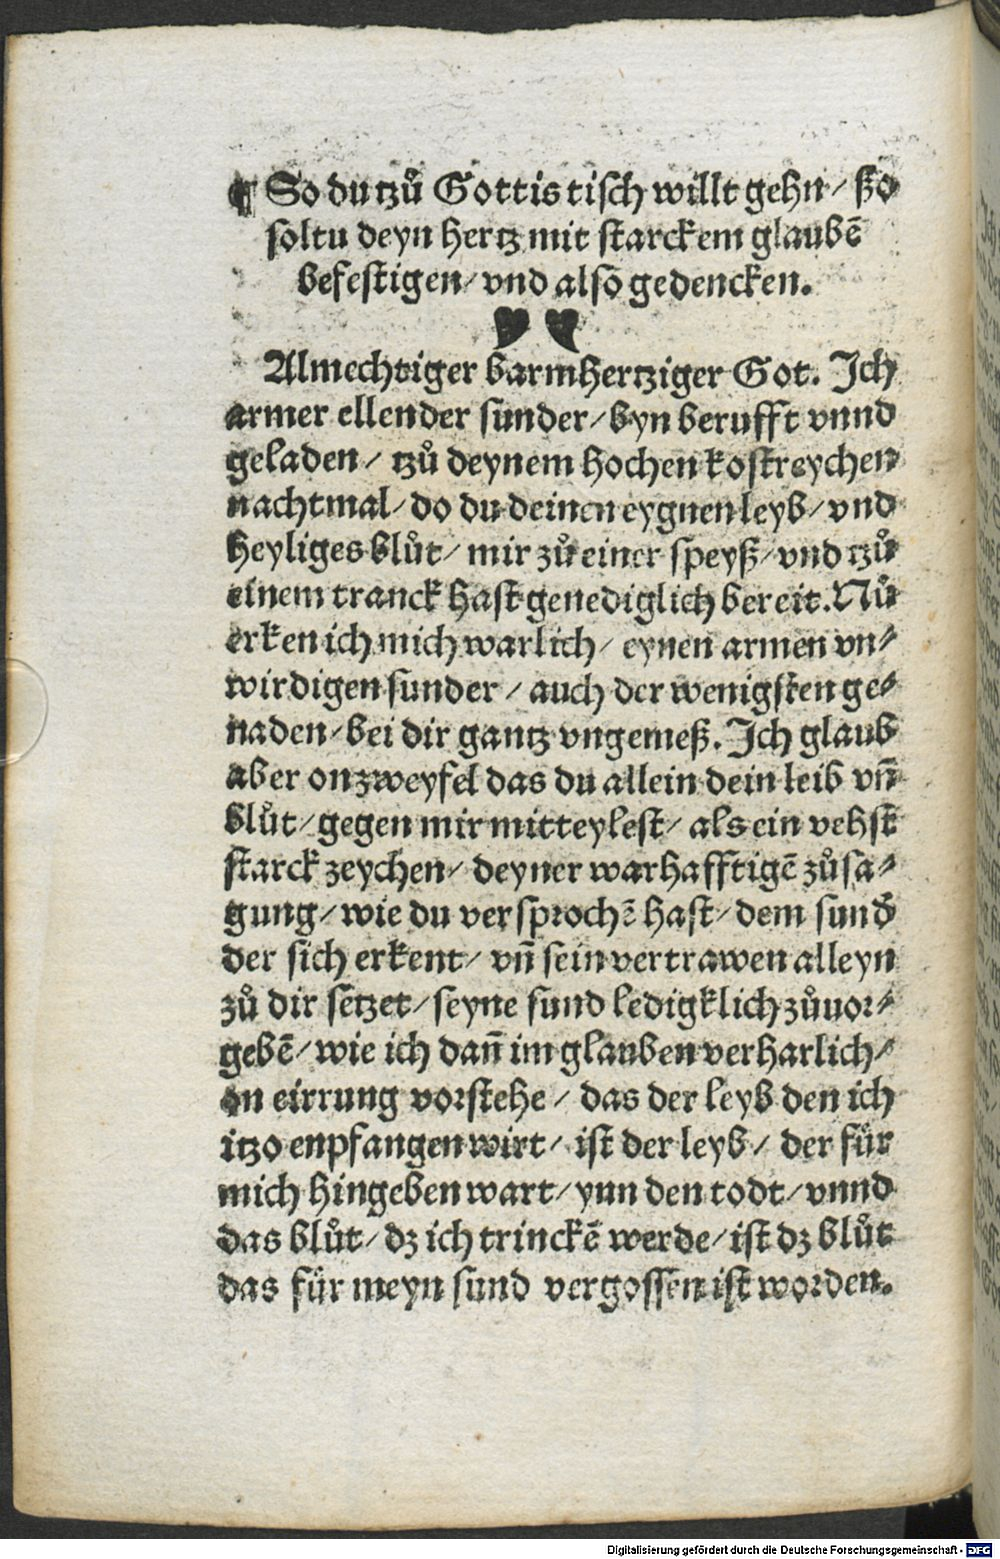 ¶ So du tzů Gottis tisch willt gehn / ßo
soltu deyn hertz mit starckem glaubē
befestigen / vnd also gedencken.
Almechtiger barmhertziger Got. Jch
armer ellender sunder / byn berufft vnnd
geladen / tzů deynem hochen kostreychen
nachtmal / do du deinen eygnen leyb / vnd
heyliges blůt / mir zů einer speyß / vnd tzů
einem tranck hast genediglich bereit. Nů
erken ich mich warlich / eynen armen vn⸗
wirdigen sunder / auch der wenigsten ge⸗
naden / bei dir gantz vngemeß. Jch glaub
aber on zweyfel das du allein dein leib vn̄
blůt / gegen mir mitteylest / als ein vehst
starck zeychen / deyner warhafftigē zůsa⸗
gung / wie du versprochē hast / dem sund̄
der sich erkent / vn̄ sein vertrawen alleyn
zů dir setzet / seyne sund ledigklich zůuor⸗
gebē / wie ich dan̄ im glauben verharlich /
on eirrung vorstehe / das der leyb den ich
itzo enpfangen wirt / ist der leyb / der für
mich hingeben wart / ynn den todt / vnnd
das blůt / dz ich trinckē werde / ist dz blůt
das für meyn sund vergossen ist worden.
Digitalisierung gefördert durch die Deutsche Forschungsgemeinschaft - DFG